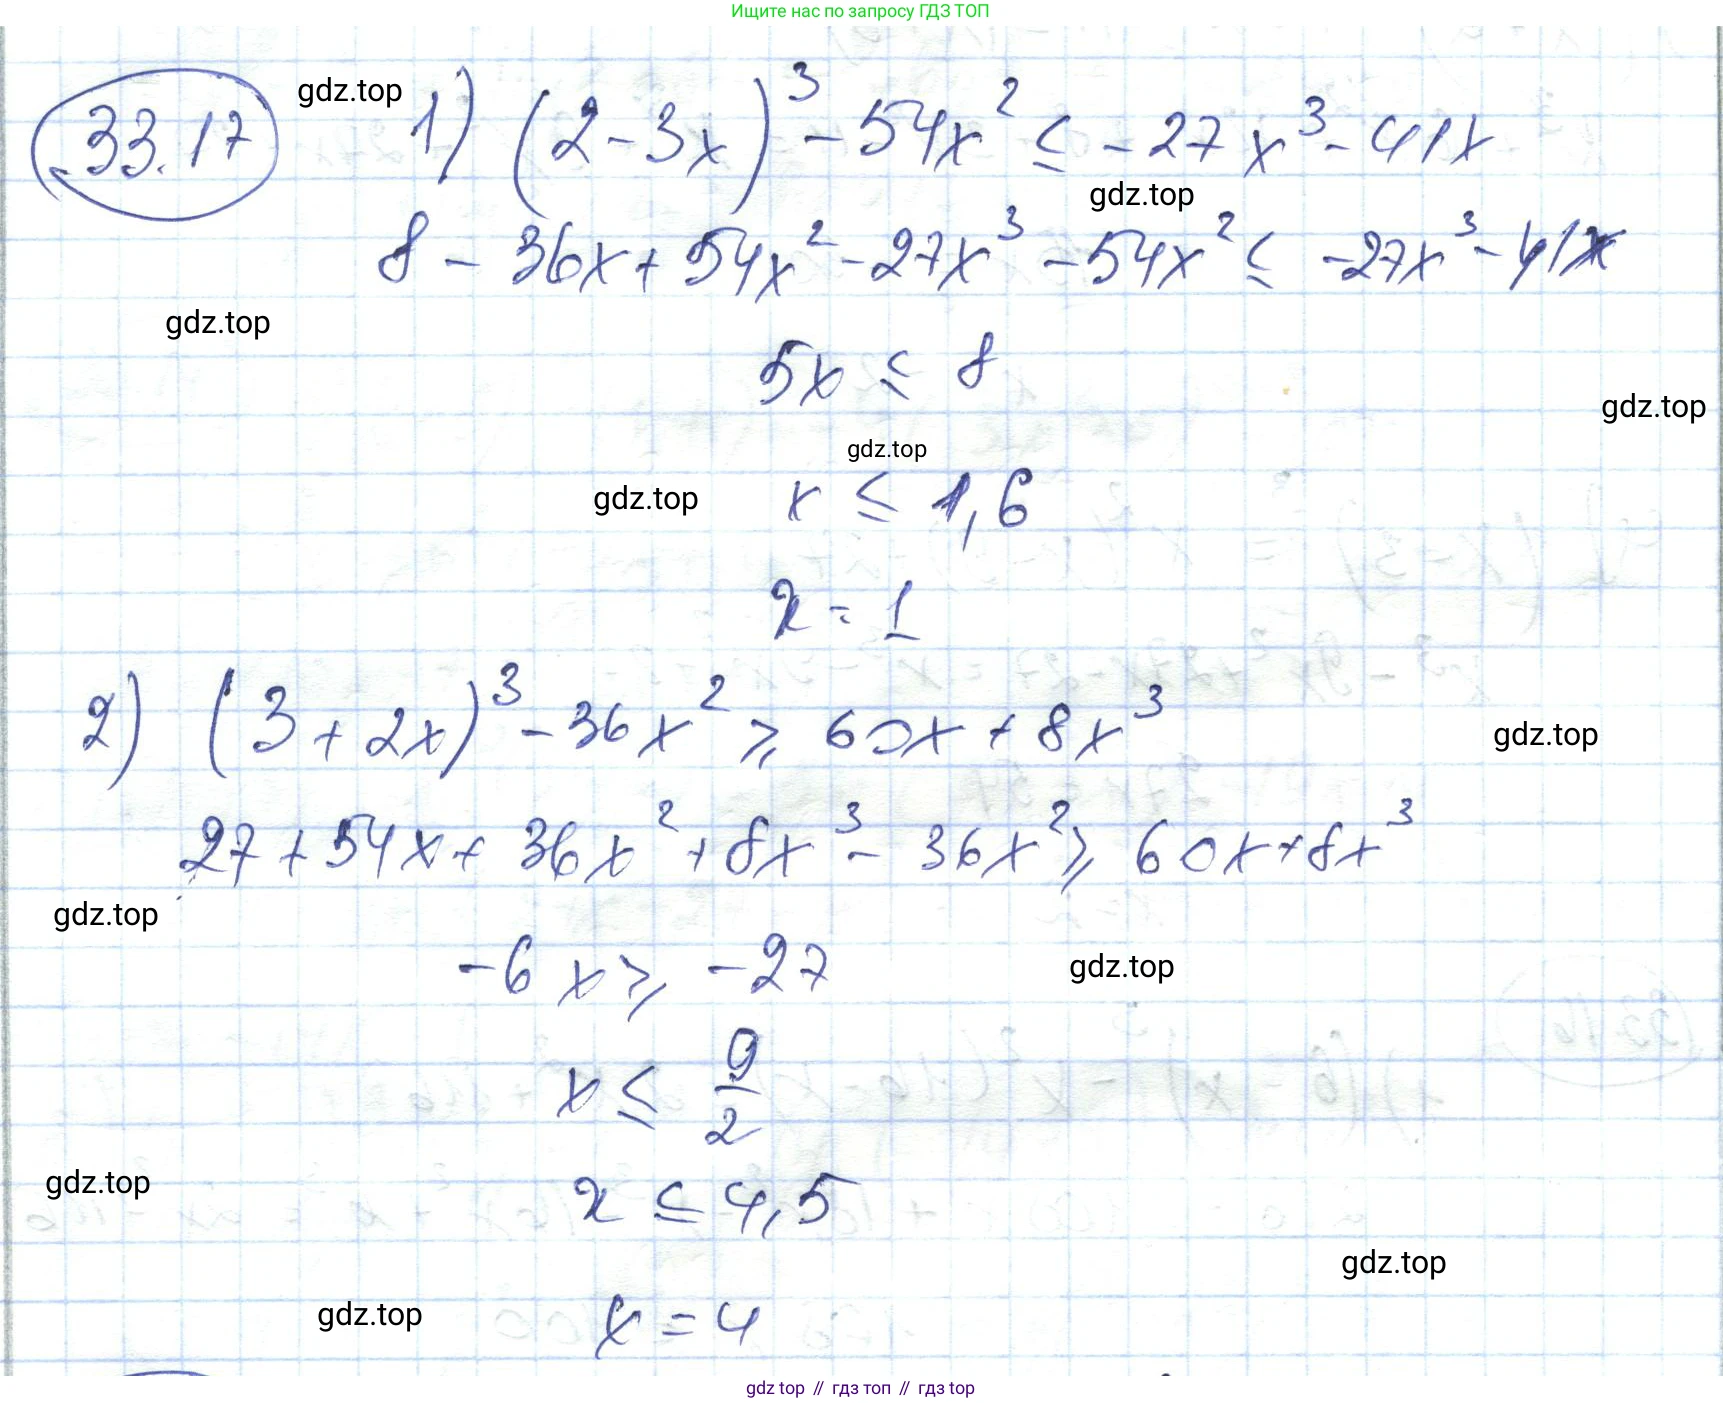 Ищите нас по запросу ГДЗ ТОП
33.17 gdz.top 1) (2-3x)³ - 54x² ≤ -27x³ - 41x
gdz.top
8 - 36x + 54x² - 27x³ - 54x² ≤ -27x³ - 41x
gdz.top
5x ≤ 8
gdz.top
gdz.top
gdz.top x ≤ 1,6
x = 1
2) (3+2x)³ - 36x² ≥ 60x + 8x³
gdz.top
27 + 54x + 36x² + 8x³ - 36x² ≥ 60x + 8x³
gdz.top
-6x ≥ -27 gdz.top
x ≤ 9/2
gdz.top x ≤ 4,5
gdz.top
gdz.top x = 4
gdz top // гдз топ // гдз top